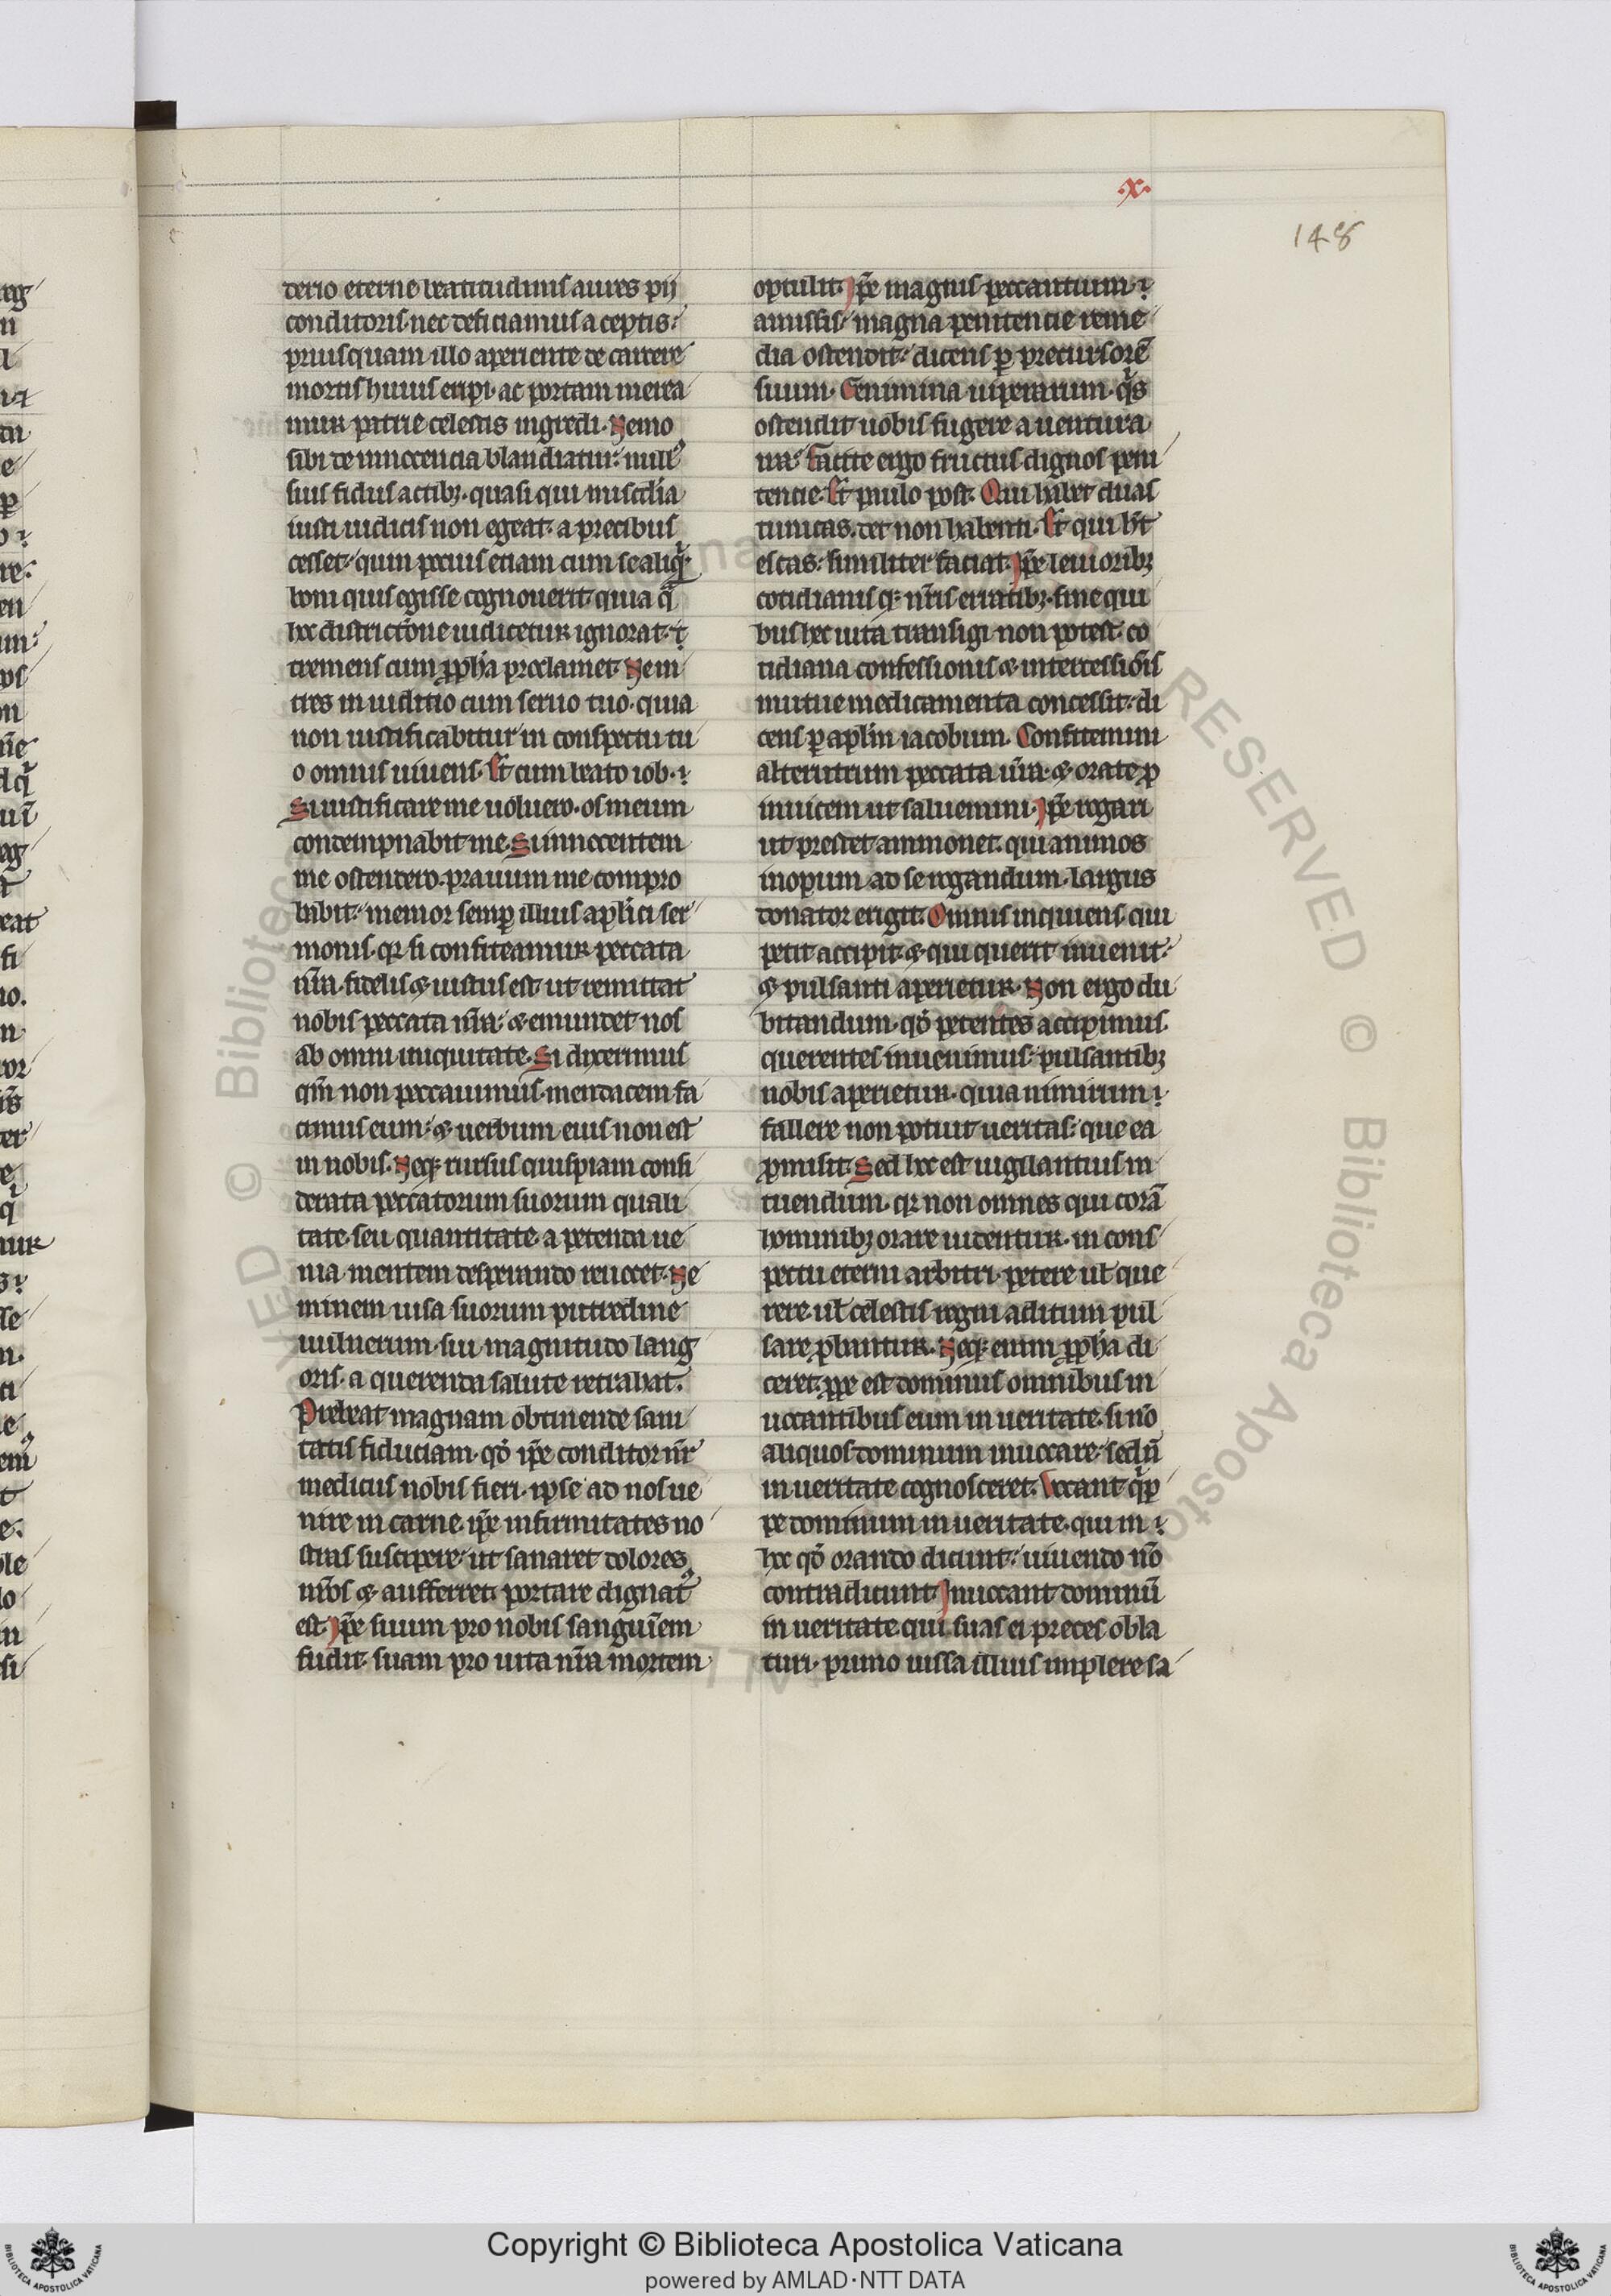 .x.
148
derio eterne beatitudinis aures pij
conditoris. nec deficiamus a ceptis:
priusquam illo aperiente de carcere
mortis huius eripi. ac portam merea
mur patrie celestis ingredi. Nemo
sibi de innocencia blandiatur: null9
suis fidus actibꝫ. quasi qui misc̄dia
iusti iudicis non egeat. a precibus
cesset: quin pocius etiam cum se aliq̇
boni quis egisse cognouerit. quia q̄
hoc districtōne iudicetur ignorat. ⁊
tremens cum ꝓpha proclamet. Ne in
tres in iuditio cum seruo tuo. quia
non iustificabitur in conspectu tu
o omnis uiuens. Et cum beato iob.
Si iustificare me uoluero. os meum
contempnabit me. Si innocentem
me ostendero. prauum me compro
babit: memor semꝑ illius apl̄ici ser
monis. qꝛ si confiteamur peccata
nr̄a. fidelis ⁊ iustus est ut remittat
nobis peccata nr̄a: ⁊ emundet nos
ab omni iniquitate. Si dixerimus
qm̄ non peccauimus. mendacem fa
cimus eum: ⁊ uerbum eius non est
in nobis. Neqꝫ rursus quispiam consi
derata peccatorum suorum quali
tate. seu quantitate. a petenda ue
nia. mentem desperando reuocet. Ne
minem uisa suorum putredine
uulnerum. sui magnitudo lang
oris. a querenda salute retrahat.
Prebeat magnam obtinende sani
tatis fiduciam. qđ ip̄e conditor nr̄
medicus nobis fieri. ipse ad nos ue
nire in carne. ip̄e infirmitates no
stras suscipere: ut sanaret dolores
nr̄os ⁊ aufferret. portare dignat9
est. Ip̄e suum pro nobis sangui͞em
fudit. suam pro uita nr̄a mortem
optulit. Ip̄e magnus peccantium
amissis. magna penitencie reme
dia ostendit: dicens ꝑ precursorē
suum. Genimina uiperarum. q̇s
ostendit uobis fugere a uentura
ira: Facite ergo fructus dignos peni
tencie. Et paulo post. Qui habet duas
tunicas. det non habenti. Et qui hēt
escas: similiter faciat. Ip̄e leuioribꝫ
cotidianisqꝫ nr̄is erratibꝫ. sine qui
bus hec uita transigi non potest: co
tidiana confessionis ⁊ intercessiōis
mutue medicamenta concessit: di
cens ꝑ apl̄m iacobum. Confitemini
alterutrum peccata ur̄a. ⁊ orate ꝓ
inuicem ut saluemini. Ip̄e rogari
ut prestet ammonet. qui animos
inopum ad se rogandum. largus
donator erigit. Omnis inquiens qui
petit accipit. ⁊ qui querit inuenit:
⁊ pulsanti aperietur. Non ergo du
bitandum. qđ petentes accipimus.
querentes inuenimus: pulsantibꝫ
nobis aperietur. quia nimirum
fallere non potuit ueritas: que ea
ꝓmisit. Sed hoc est uigilantius in
tuendum. qꝛ non omnes qui corā
hominibꝫ orare uidentur. in cons
pectu eterni arbitri. petere ul̄ que
rere. ul̄ celestis regni aditum pul
sare ꝓbantur. Neqꝫ enim ꝓpha di
ceret. ꝓpe est dominus omnibus in
uocantibus eum in ueritate. si nō
aliquos dominum inuocare. sed n̄
in ueritate cognosceret. Uocant q̇p
pe dominum in ueritate. qui in
hoc qđ orando dicunt: uiuendo nō
contradicunt. Inuocant dominū
in ueritate. qui suas ei preces obla
turi. primo iussa illius implere sa
Copyright © Biblioteca Apostolica Vaticana
powered by AMLAD·NTT DATA